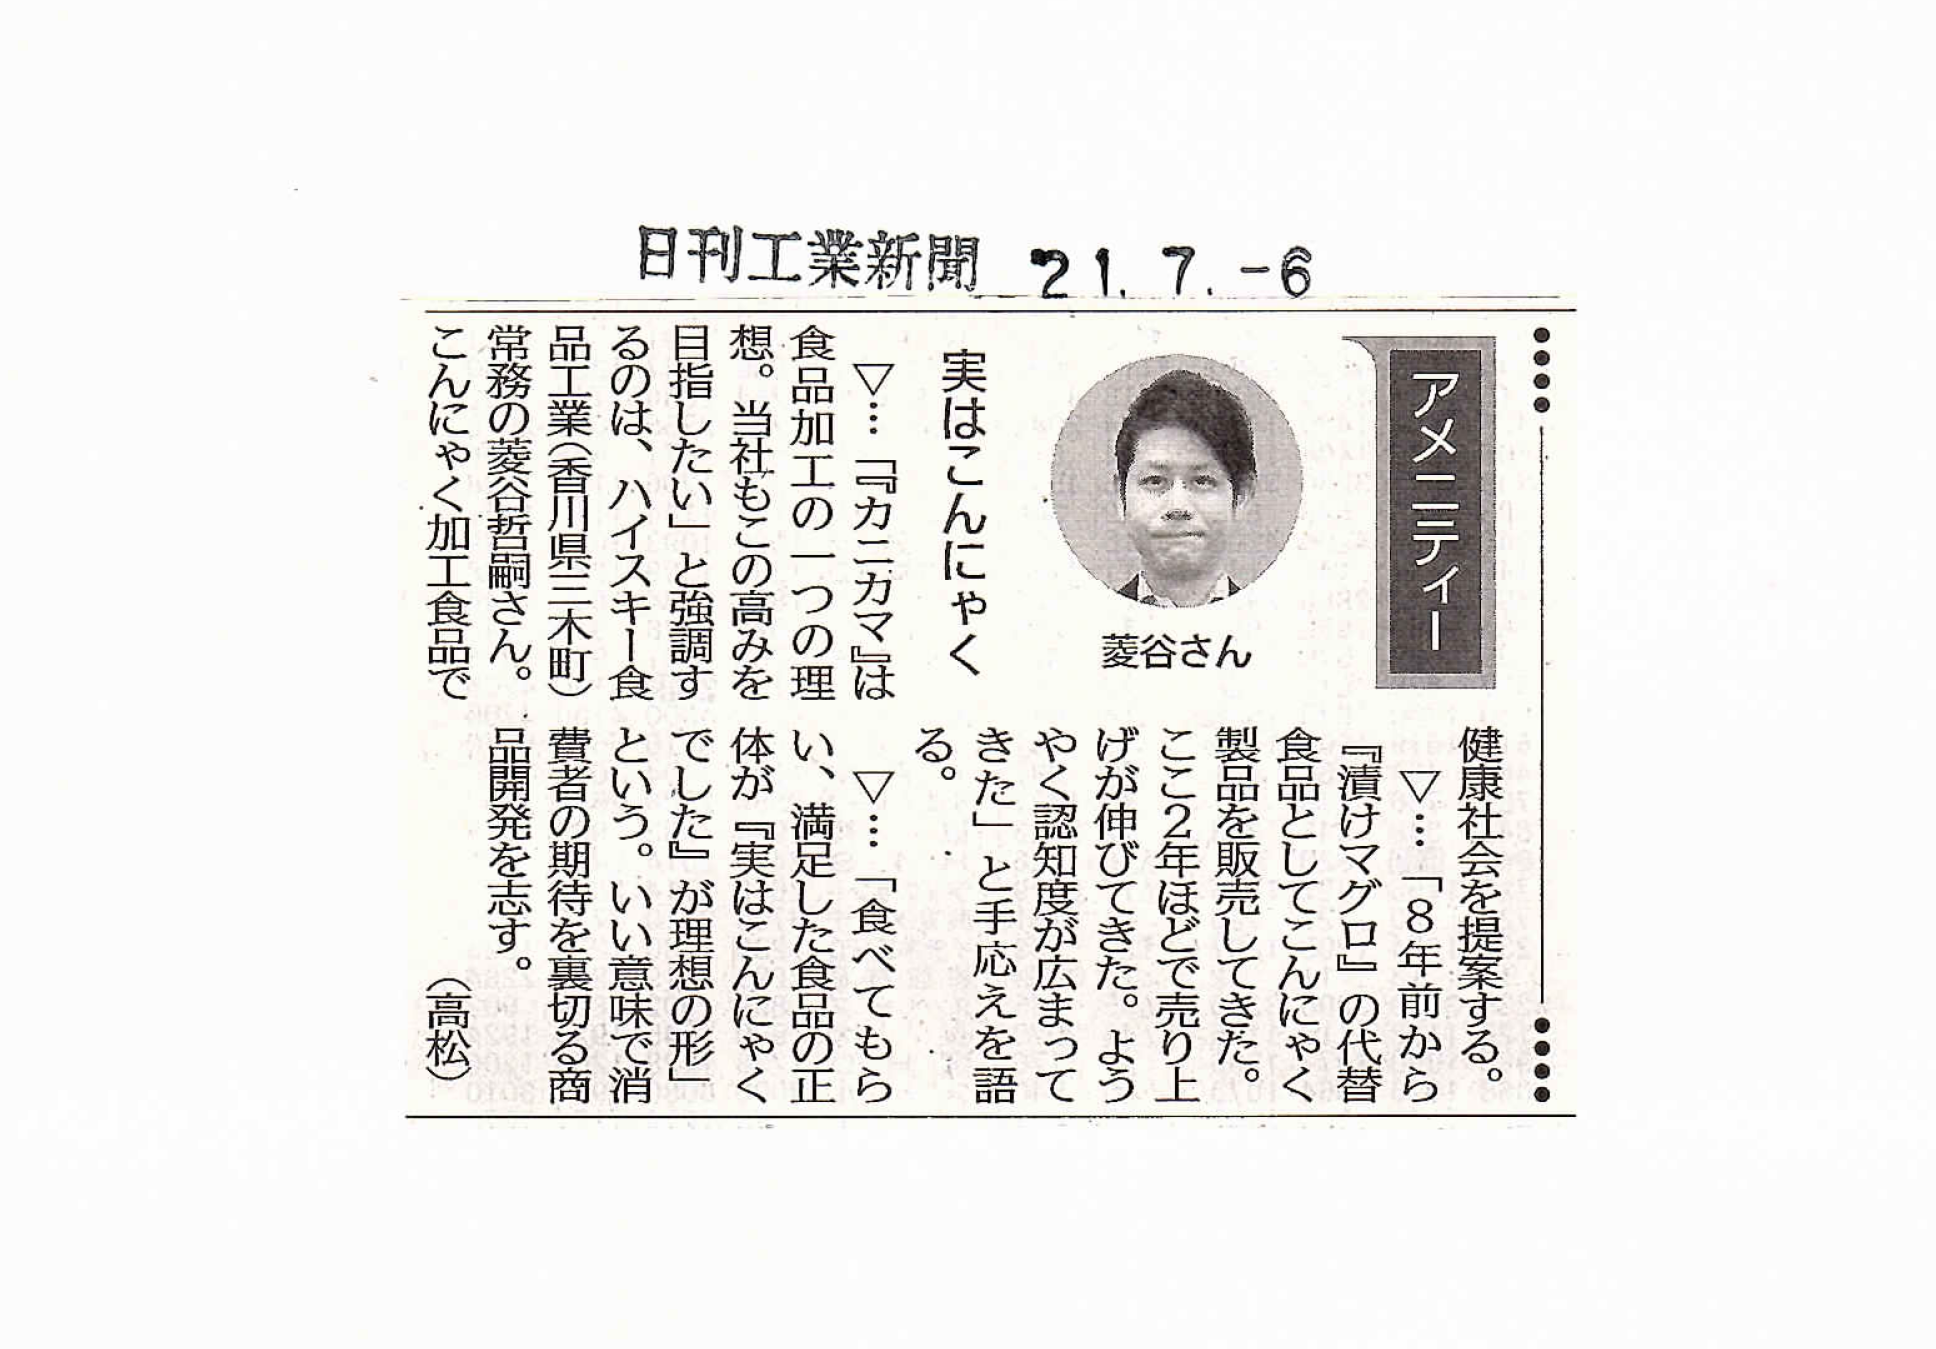 日刊工業新聞 '21.7.-6
アメニティー
菱谷さん
実はこんにゃく
▽…「『カニカマ』は
食品加工の一つの理
想。当社もこの高みを
目指したい」と強調す
るのは、ハイスキー食
品工業（香川県三木町）
常務の菱谷哲嗣さん。
こんにゃく加工食品で
健康社会を提案する。
▽…「8年前から
『漬けマグロ』の代替
食品としてこんにゃく
製品を販売してきた。
ここ2年ほどで売り上
げが伸びてきた。よう
やく認知度が広まって
きた」と手応えを語
る。
▽…「食べてもら
い、満足した食品の正
体が『実はこんにゃく
でした』が理想の形」
という。いい意味で消
費者の期待を裏切る商
品開発を志す。
（高松）